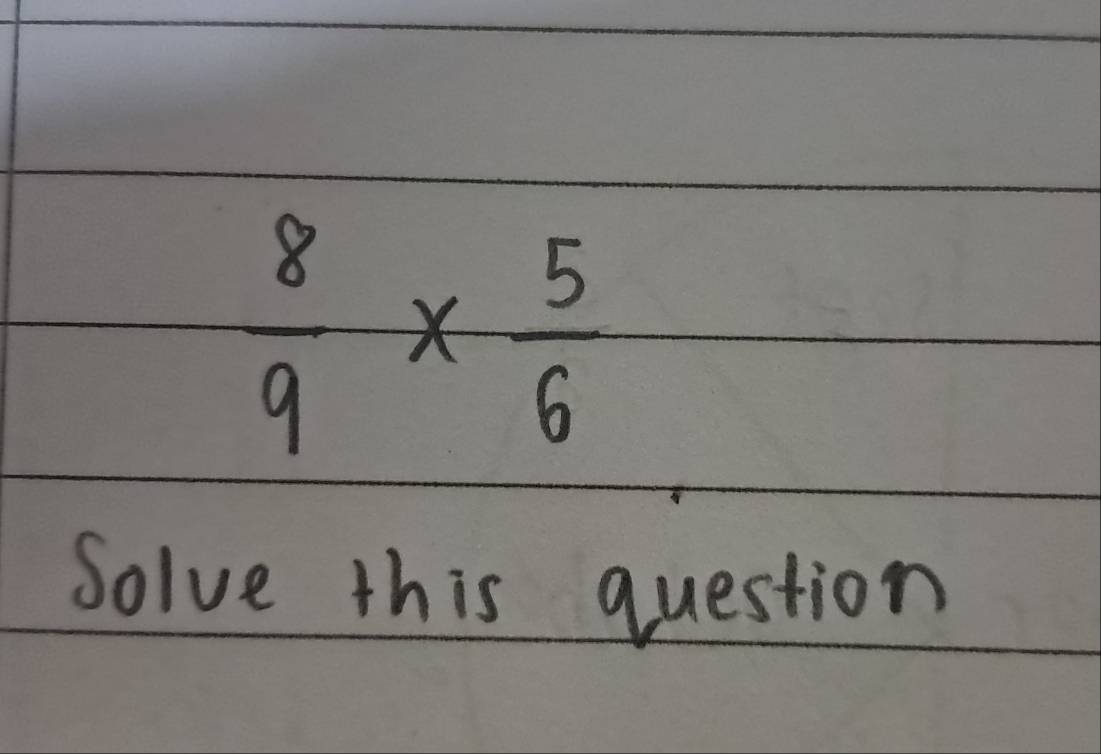 8/9 × 5/6
Solve this question